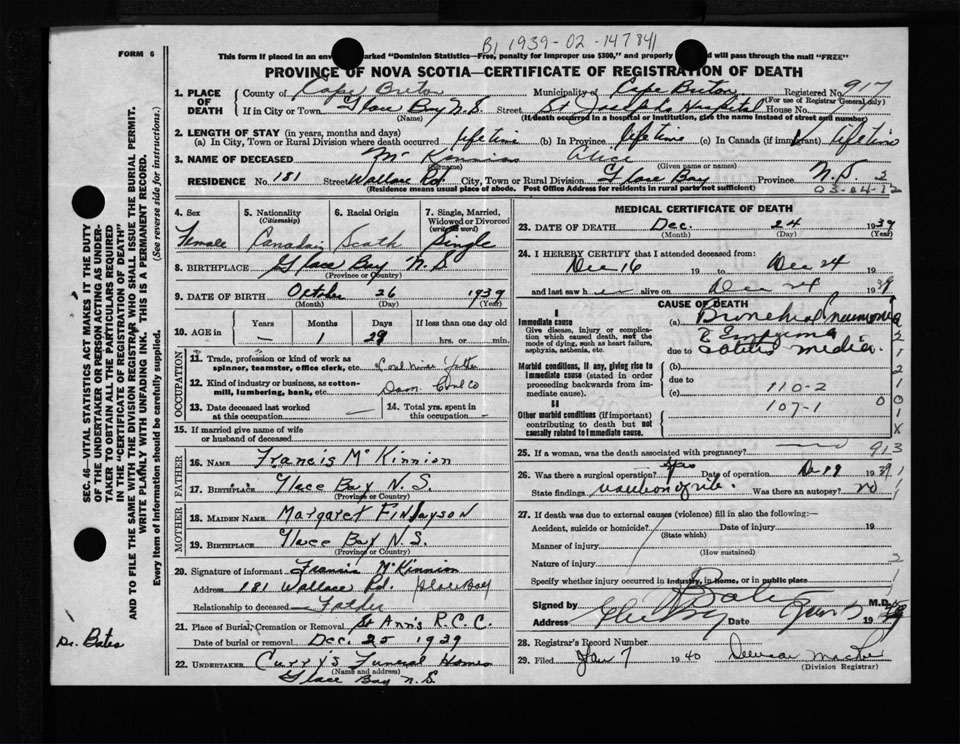 B) 1939-02-147841
FORM 6
This form if placed in an enve marked "Dominion Statistics—Free, penalty for improper use $300," and properly ed will pass through the mail "FREE"
PROVINCE OF NOVA SCOTIA—CERTIFICATE OF REGISTRATION OF DEATH
1. PLACE OF DEATH County of Cape Breton Municipality of Cape Breton Registered No. 917
(For use of Registrar General only)
If in City or Town Glace Bay N.S. Street St Joseph's Hospital House No.
(Name) (If death occurred in a hospital or institution, give the name instead of street and number)
2. LENGTH OF STAY (in years, months and days)
(a) In City, Town or Rural Division where death occurred lifetime (b) In Province lifetime (c) In Canada (if immigrant) lifetime
3. NAME OF DECEASED McKinnion Alice
(Surname) (Given name or names)
RESIDENCE No. 181 Street Wallace Rd. City, Town or Rural Division Glace Bay Province N.S. 2
(Residence means usual place of abode. Post Office Address for residents in rural parts not sufficient) 03-04-12
4. Sex Female
5. Nationality (Citizenship) Canadian
6. Racial Origin Scotch
7. Single, Married, Widowed or Divorced (write the word) Single
8. BIRTHPLACE Glace Bay N.S
(Province or Country)
9. DATE OF BIRTH October 26 1939
(Month) (Day) (Year)
10. AGE in Years — Months 1 Days 29 If less than one day old hrs. or min.
OCCUPATION
11. Trade, profession or kind of work as spinner, teamster, office clerk, etc. Coal miner father
12. Kind of industry or business, as cotton-mill, lumbering, bank, etc. Dom. Coal Co
13. Date deceased last worked at this occupation —
14. Total yrs. spent in this occupation —
15. If married give name of wife or husband of deceased
FATHER
16. NAME Francis McKinnion
17. BIRTHPLACE Glace Bay N.S.
(Province or Country)
MOTHER
18. MAIDEN NAME Margaret Finlayson
19. BIRTHPLACE Glace Bay N.S.
(Province or Country)
20. Signature of informant Francis McKinnion
Address 181 Wallace Rd. Glace Bay
Relationship to deceased Father
21. Place of Burial, Cremation or Removal St Ann's R.C.C.
Date of burial or removal Dec. 25 1939
22. UNDERTAKER Curry's Funeral Homes
(Name and address)
Glace Bay N.S
MEDICAL CERTIFICATE OF DEATH
23. DATE OF DEATH Dec. 24 1939
(Month) (Day) (Year)
24. I HEREBY CERTIFY that I attended deceased from:
Dec 16 19 to Dec 24 19
and last saw h er alive on Dec 24 1939
CAUSE OF DEATH
I
Immediate cause
Give disease, injury or complication which caused death, not the mode of dying, such as heart failure, asphyxia, asthenia, etc.
(a) Bronchial pneumonia
Empyema
due to Otitis media.
Morbid conditions, if any, giving rise to immediate cause (stated in order proceeding backwards from immediate cause).
(b)
due to
(c) 110-2
II
107-1
Other morbid conditions (if important) contributing to death but not causally related to immediate cause.
25. If a woman, was the death associated with pregnancy? no 913
26. Was there a surgical operation? yes Date of operation Dec 19 1939
State findings resection of rib. Was there an autopsy? no
27. If death was due to external causes (violence) fill in also the following:—
Accident, suicide or homicide? Date of injury 19
(State which)
Manner of injury
(How sustained)
Nature of injury
Specify whether injury occurred in industry, in home, or in public place
Signed by Bates M.D.
Address Glace Bay Date Jan 19
28. Registrar's Record Number
29. Filed Jan 7 1940
(Division Registrar)
SEC. 46—VITAL STATISTICS ACT MAKES IT THE DUTY OF THE UNDERTAKER OR PERSON ACTING AS UNDERTAKER TO OBTAIN ALL THE PARTICULARS REQUIRED IN THE "CERTIFICATE OF REGISTRATION OF DEATH"
AND TO FILE THE SAME WITH THE DIVISION REGISTRAR WHO SHALL ISSUE THE BURIAL PERMIT.
WRITE PLAINLY WITH UNFADING INK. THIS IS A PERMANENT RECORD.
Every item of information should be carefully supplied. (See reverse side for instructions.)
Dr. Bates